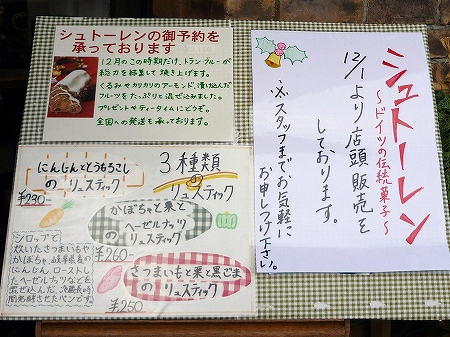 シュトーレンの御予約を
承っております
12月のこの時期だけ、トラン・ブルーが
総力を結集して焼き上げます。
くるみやカリカリのアーモンド、漬け込んだ
フルーツをたっぷりと混ぜ込みました。
プレゼントやティータイムにどうぞ。
全国への発送も承っております。
シュトーレン
～ドイツの伝統菓子～
12/1より店頭販売を
しております。
※スタッフまでお気軽に
お申しつけ下さい。
3種類
の
リュスティック
にんじんととうもろこし
のリュスティック
¥230-
かぼちゃと栗と
ヘーゼルナッツ
のリュスティック
¥260-
さつまいもと栗と黒ごま
のリュスティック
¥250
シロップで
炊いたさつまいもや
かぼちゃ、岐阜県産の
にんじん、ローストした
ヘーゼルナッツなどを
混ぜ込んだ、冷蔵長時
間発酵させたパンです。